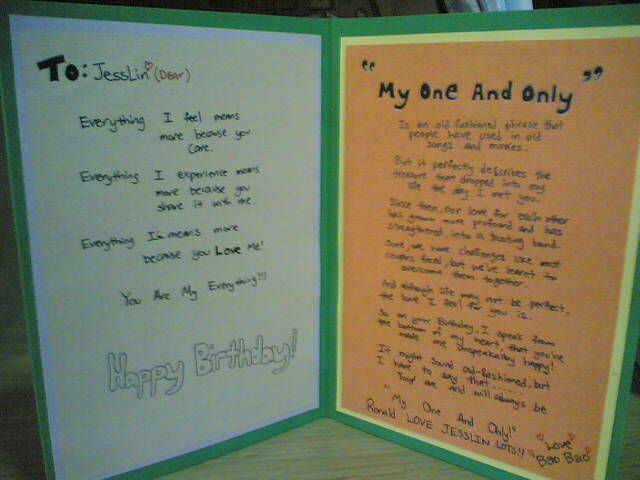 To: JessLin (Dear)
Everything I feel means
more because you
care.
Everything I experience means
more because you
share it with me.
Everything I means more
because you Love Me!
You Are My Everything!!!
Happy Birthday!
"My One And Only"
Is an old fashioned phrase that
people have used in old
songs and movies.
But it perfectly describes the
treasure that dropped into my
life the day I met you.
Since then, our love for each other
has grown more profound and has
strengthened into a lasting bond.
Sure, we have challenges like most
couples faced, but we've learnt to
overcome them together.
And although life may not be perfect,
the love I feel for you is.
So on your Birthday, I speak from
the bottom of my heart, that you've
made me unspeakably happy!
It might sound old-fashioned, but
I have to say that ......
You are and will always be
"My One And Only!"
Ronald LOVE JESSLIN LOTS!!
Love
Bao Bao